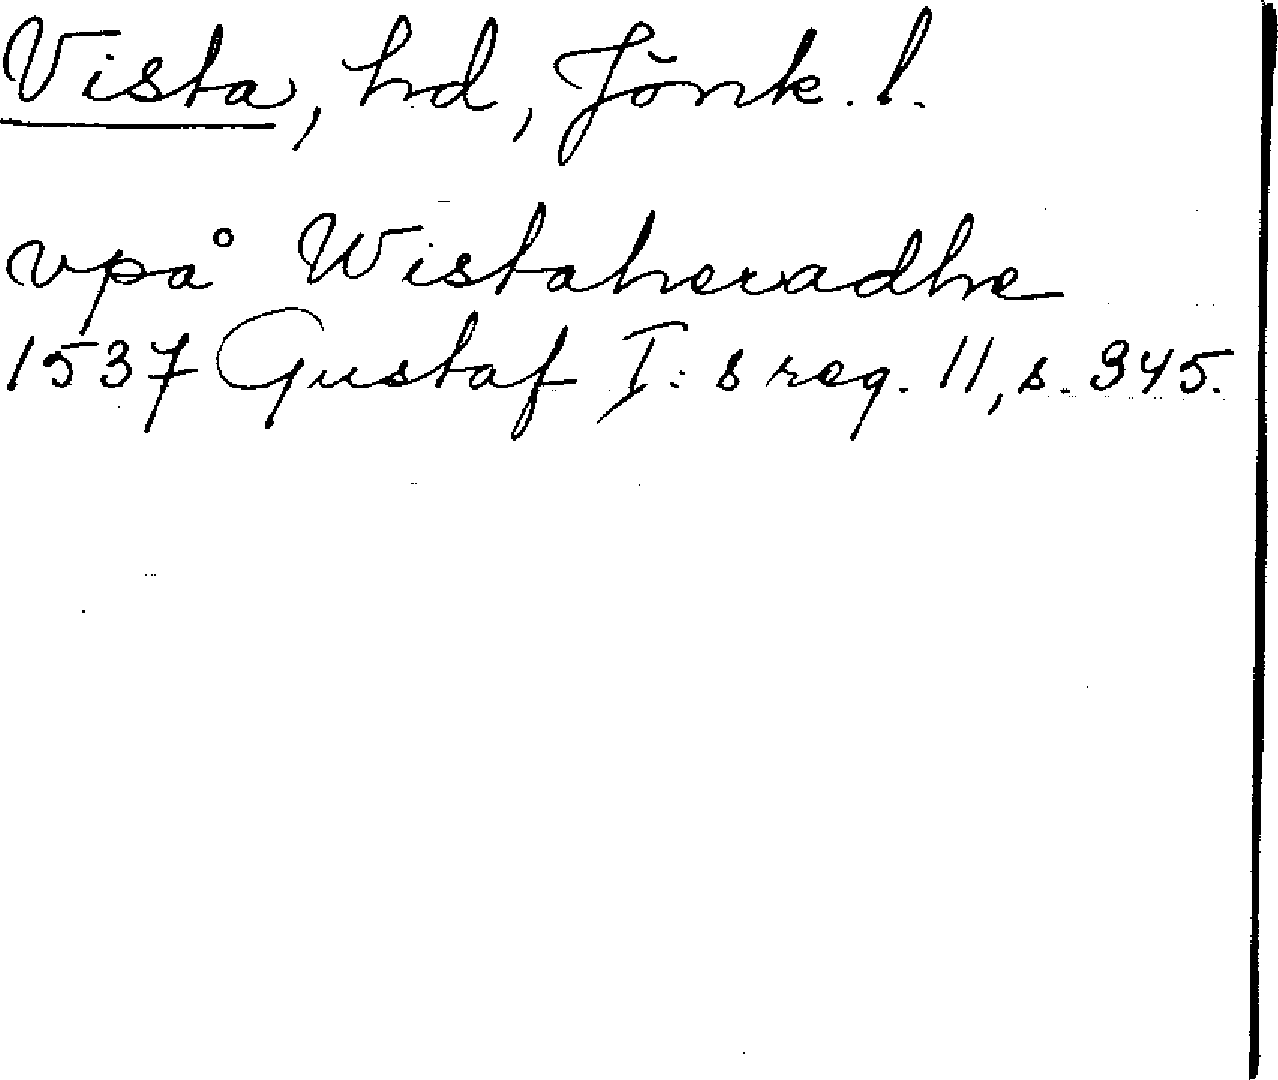 Vista, hd, Jönk. l.
vpå Wistaheradhe
1537 Gustaf I:s reg. 11, s. 345.